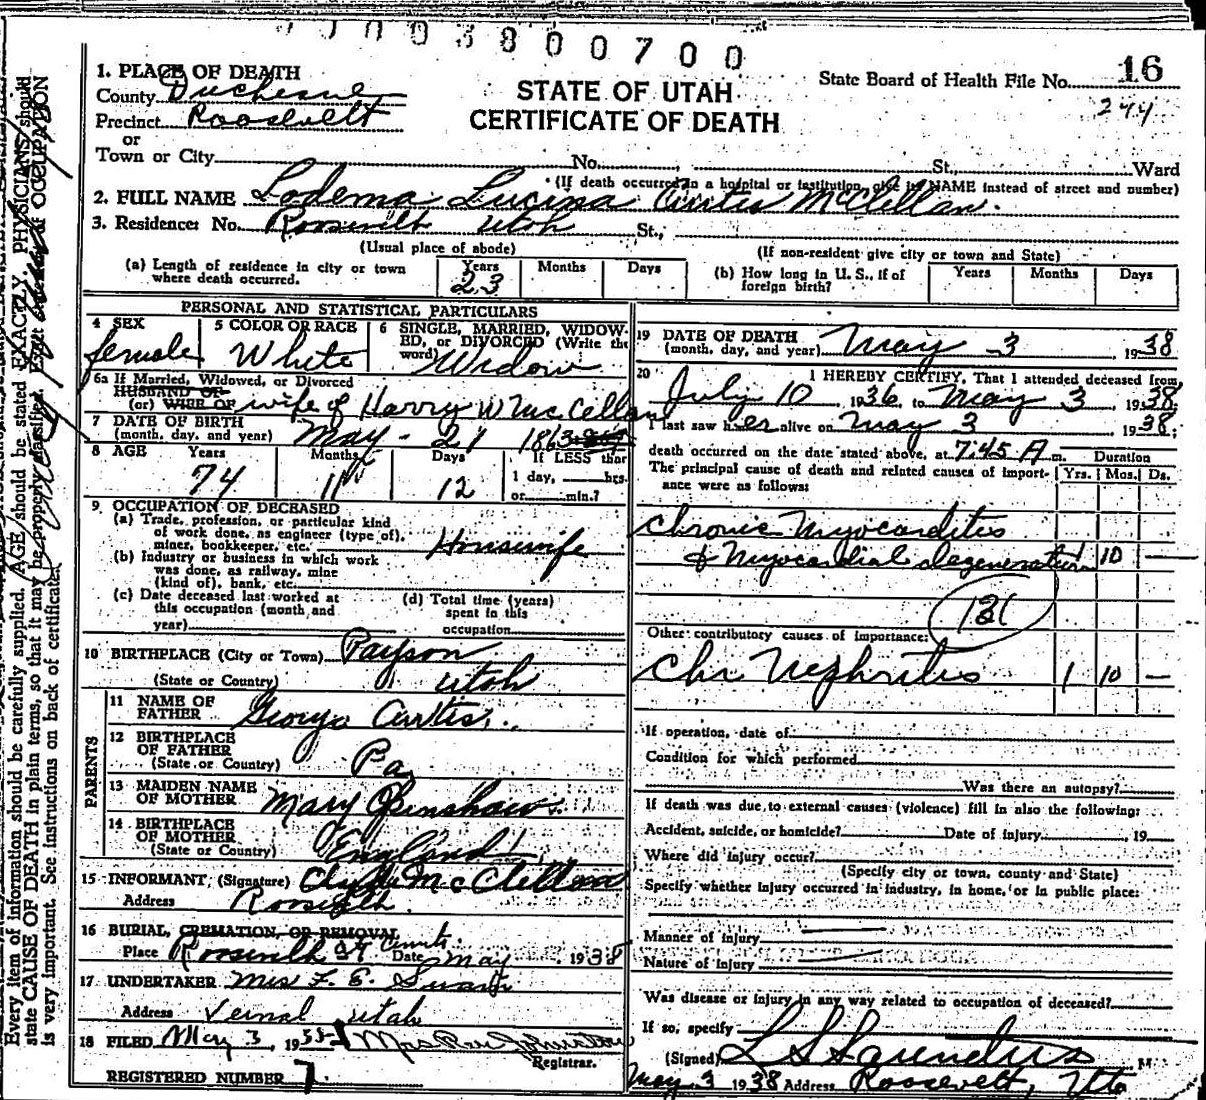 0003800700
1. PLACE OF DEATH
County Duchesne
Precinct Roosevelt
or
Town or City No. St., Ward
STATE OF UTAH
CERTIFICATE OF DEATH
State Board of Health File No. 16
244
(If death occurred in a hospital or institution, give its NAME instead of street and number)
2. FULL NAME Lodema Lucina Curtis McClellan.
3. Residence: No. Roosevelt Utah St.,
(Usual place of abode) (If non-resident give city or town and State)
(a) Length of residence in city or town where death occurred. Years 23 Months Days
(b) How long in U. S., if of foreign birth? Years Months Days
PERSONAL AND STATISTICAL PARTICULARS
4 SEX female
5 COLOR OR RACE White
6 SINGLE, MARRIED, WIDOWED, or DIVORCED (Write the word) Widow
6a If Married, Widowed, or Divorced
HUSBAND OF
(or) WIFE OF wife of Harry W McCellan
7 DATE OF BIRTH
(month, day, and year) May - 21 1863
8 AGE Years 74 Months 11 Days 12 If LESS than 1 day, hrs. or min.?
9. OCCUPATION OF DECEASED
(a) Trade, profession, or particular kind
of work done, as engineer (type of),
miner, bookkeeper, etc. Housewife
(b) Industry or business in which work
was done, as railway, mine
(kind of), bank, etc.
(c) Date deceased last worked at
this occupation (month and
year)
(d) Total time (years)
spent in this
occupation
10 BIRTHPLACE (City or Town) Payson
(State or Country) Utah
PARENTS
11 NAME OF
FATHER George Curtis
12 BIRTHPLACE
OF FATHER
(State or Country) Pa
13 MAIDEN NAME
OF MOTHER Mary
14 BIRTHPLACE
OF MOTHER
(State or Country) England
15 INFORMANT, (Signature) Clyde McClellan
Address Roosevelt
16 BURIAL, CREMATION, OR REMOVAL
Place Roosevelt Date May 1938
17 UNDERTAKER Mrs F. E.
Address Vernal Utah
18 FILED May 3, 1938 Mrs Johnston
Registrar.
REGISTERED NUMBER 7.
19 DATE OF DEATH
(month, day, and year) May 3, 1938
20 I HEREBY CERTIFY, That I attended deceased from
July 10 1936, to May 3, 1938.
I last saw her alive on May 3 1938;
death occurred on the date stated above, at 7:45 A m. Duration
The principal cause of death and related causes of importance were as follows: Yrs. Mos. Ds.
Chronic Myocarditis
& Myocardial degeneration 1 10 —
131
Other contributory causes of importance:
Chr Nephritis 1 10 —
If operation, date of
Condition for which performed
Was there an autopsy?
If death was due to external causes (violence) fill in also the following:
Accident, suicide, or homicide? Date of injury , 19
Where did injury occur?
(Specify city or town, county and State)
Specify whether injury occurred in industry, in home, or in public place:
Manner of injury
Nature of injury
Was disease or injury in any way related to occupation of deceased?
If so, specify
(Signed) L S Saunders M
May 3 1938 Address Roosevelt, Uta
Every item of information should be carefully supplied. AGE should be stated EXACTLY. PHYSICIANS should
state CAUSE OF DEATH in plain terms, so that it may be properly classified. Exact OCCUPATION
is very important. See instructions on back of certificate.